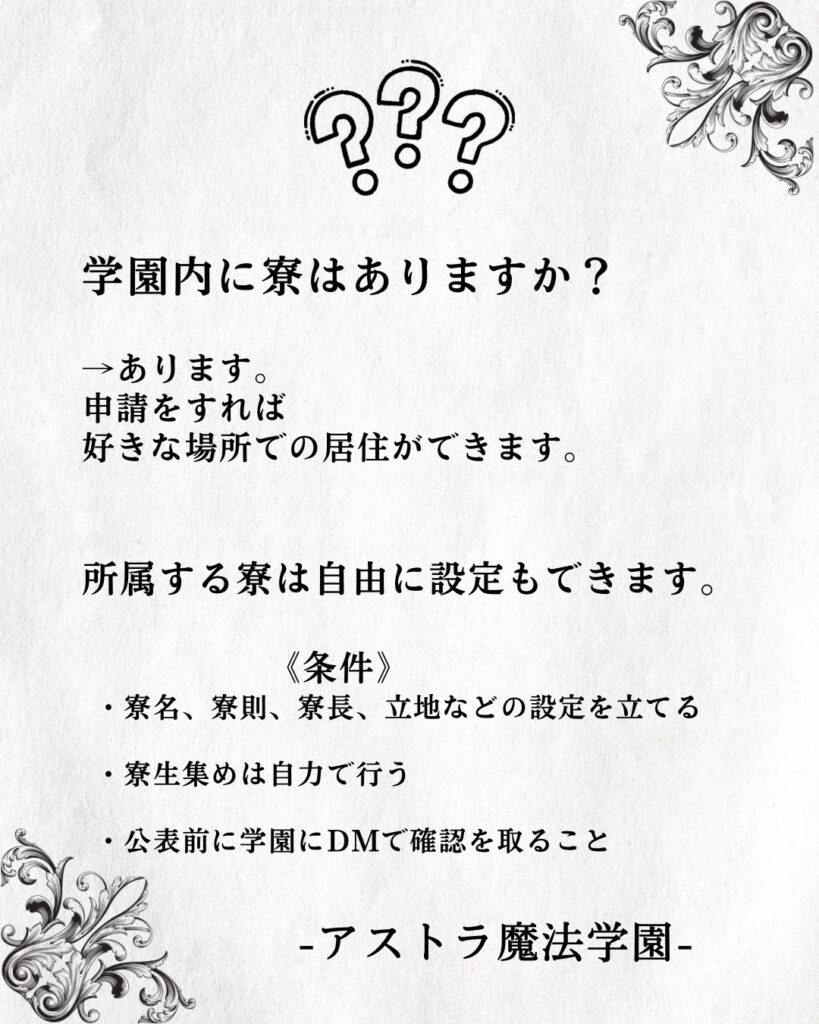 ???
学園内に寮はありますか？
→あります。
申請をすれば
好きな場所での居住ができます。
所属する寮は自由に設定もできます。
《条件》
・寮名、寮則、寮長、立地などの設定を立てる
・寮生集めは自力で行う
・公表前に学園にDMで確認を取ること
-アストラ魔法学園-